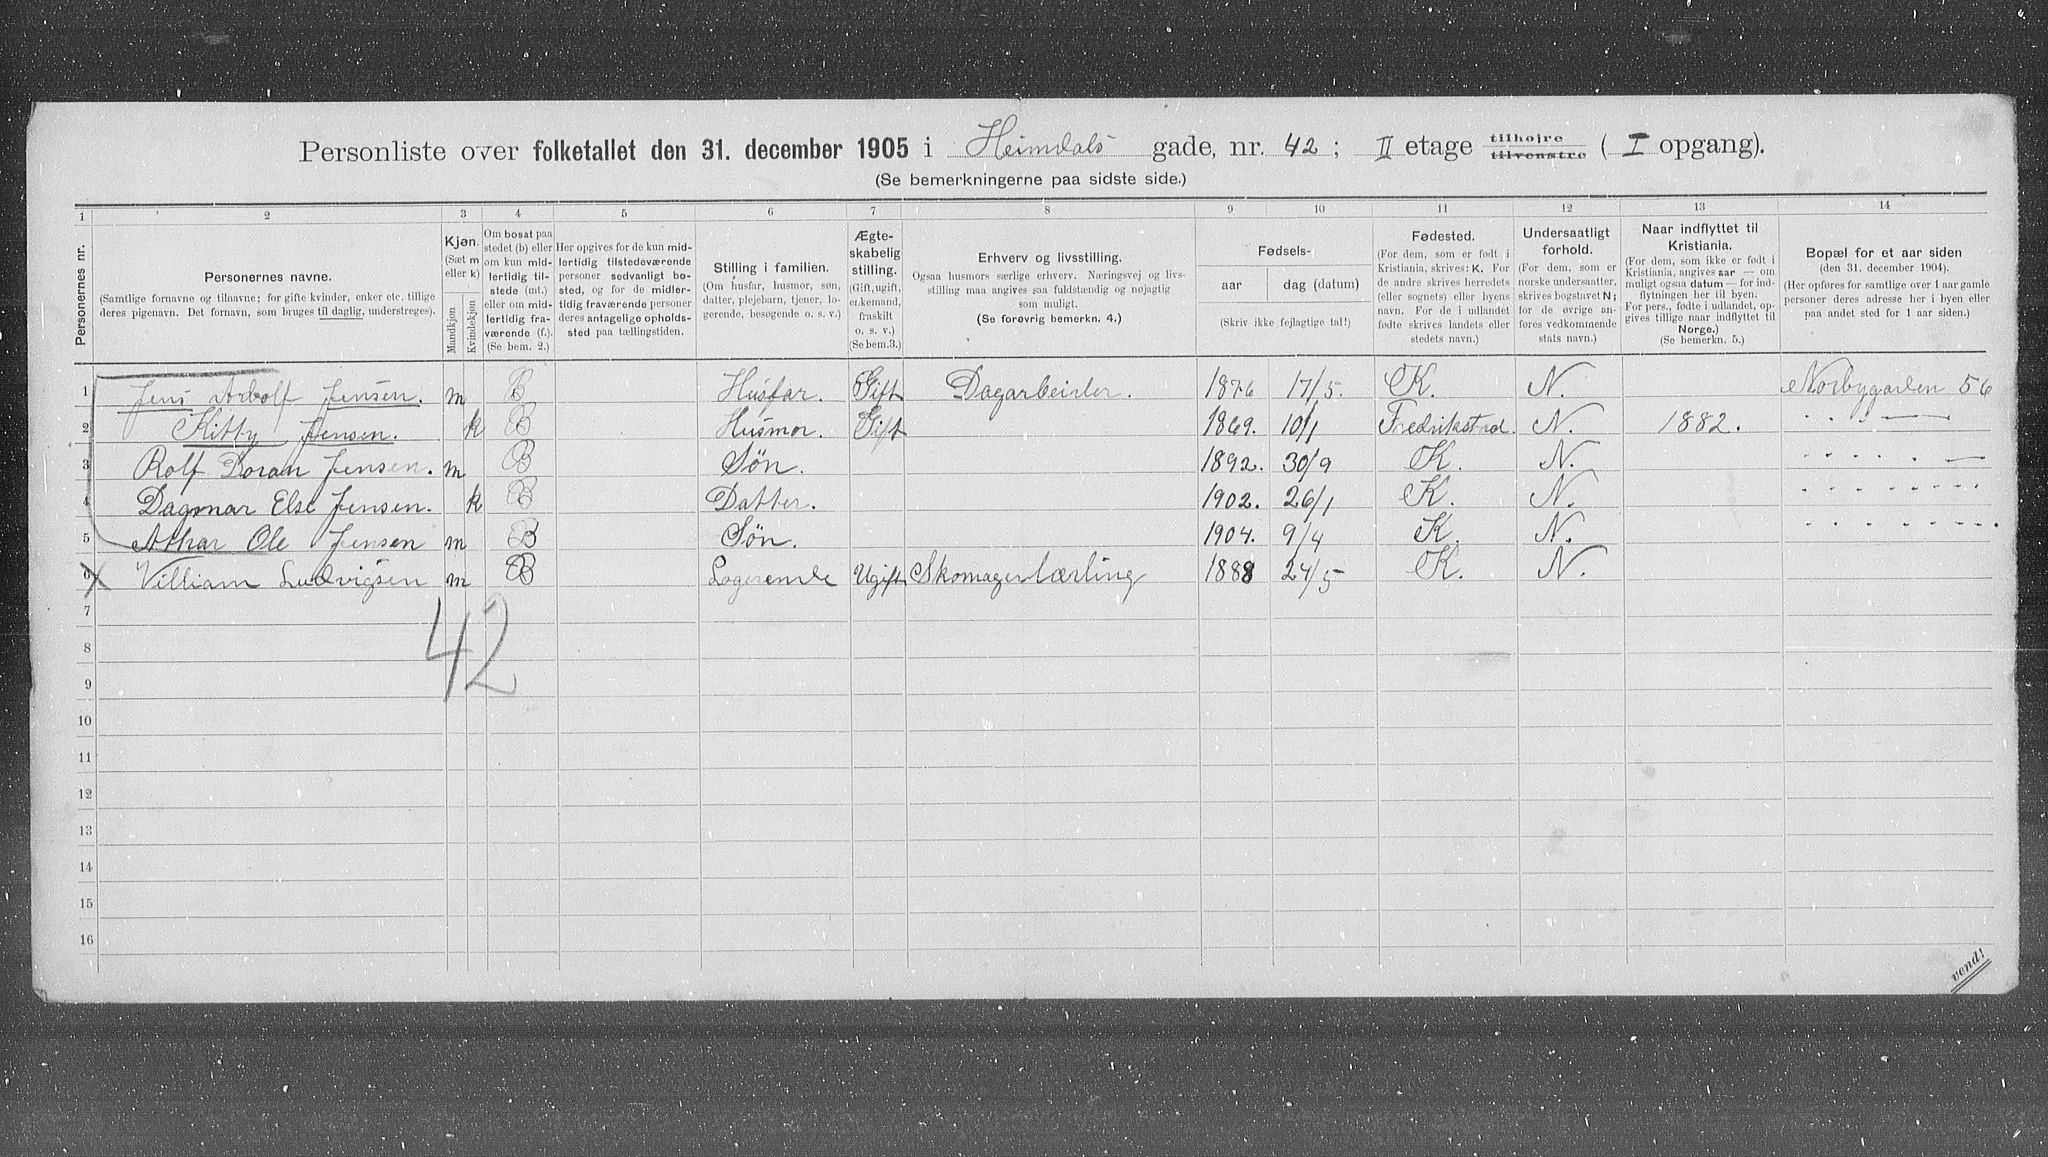 Personliste over folketallet den 31. december 1905 i Heimdals gade, nr. 42; II etage tilhøjre tilvenstre (I opgang).
(Se bemerkningerne paa sidste side.)
1 2 3 4 5 6 7 8 9 10 11 12 13 14
Personernes nr.
Personernes navne.
(Samtlige fornavne og tilnavne; for gifte kvinder, enker etc. tillige deres pigenavn. Det fornavn, som bruges til daglig, understreges).
Kjøn.
(Sæt m eller k)
Mandkjøn
Kvindekjøn
Om bosat paa stedet (b) eller om kun midlertidig tilstede (mt.) eller om midlertidig fraværende (f.). (Se bem. 2.)
Her opgives for de kun midlertidig tilstedeværende personer sedvanligt bosted, og for de midlertidig fraværende personer deres antagelige opholdssted paa tællingstiden.
Stilling i familien.
(Om husfar, husmor, søn, datter, plejebarn, tjener, logerende, besøgende o. s. v.)
Ægteskabelig stilling.
(Gift, ugift, enkemand, fraskilt o. s. v.)
(Se bem. 3.)
Erhverv og livsstilling.
Ogsaa husmors særlige erhverv. Næringsvej og livsstilling maa angives saa fuldstændig og nøjagtig som muligt.
(Se forøvrig bemerkn. 4.)
Fødsels-
aar
dag (datum)
(Skriv ikke fejlagtige tal!)
Fødested.
(For dem, som er født i Kristiania, skrives: K. For de andre skrives herredets (eller sognets) eller byens navn. For de i udlandet fødte skrives landets eller stedets navn.)
Undersaatligt forhold.
(For dem, som er norske undersaatter, skrives bogstavet N; for de øvrige anføres vedkommende stats navn.)
Naar indflyttet til Kristiania.
(For dem, som ikke er født i Kristiania, angives aar — om muligt ogsaa datum — for indflytningen her til byen. For pers., fødte i udlandet, opgives tillige naar indflyttet til Norge.)
(Se bemerkn. 5.)
Bopæl for et aar siden
(den 31. december 1904).
(Her opføres for samtlige over 1 aar gamle personer deres adresse her i byen eller paa andet sted for 1 aar siden.)
1 Jens Adolf Jensen. m B Husfar. Gift Dagarbeider. 1876 17/5. K. N. Norbygarden 56
2 Kitty Jensen. k B Husmor. Gift 1869. 10/1 Fredrikstad. N. 1882. " " —
3 Rolf Doran Jensen. m B Søn. 1892. 30/9 K. N. " " " " " —
4 Dagmar Else Jensen. k B Datter. 1902. 26/1 K. N. " " " " " " " "
5 Athar Ole Jensen m B Søn. 1904. 9/4 K. N. " " " " " " " "
6 Villiam Ludvigsen m B Logerende Ugift Skomagerlærling 1888 24/5 K. N.
42
7
8
9
10
11
12
13
14
15
16
vend!